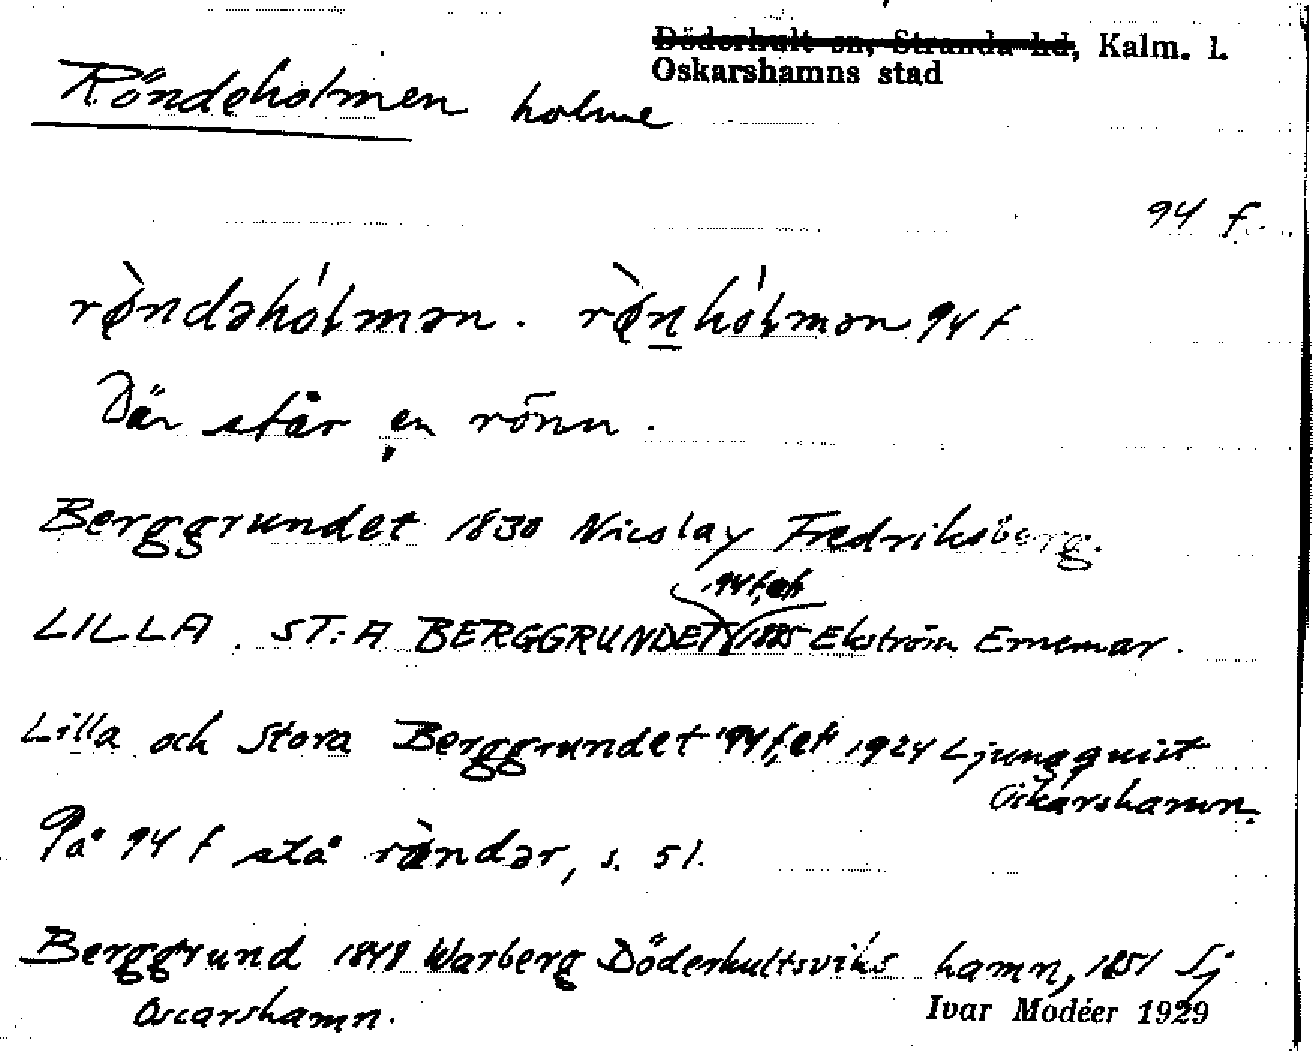 Döderhult sn, Stranda hd, Kalm. l.
Oskarshamns stad
Röndeholmen holme
94 f.
rø̀ndəhólmən. rø̀nhólmən 94 f
Där står en rönn.
Berggrundet 1830 Nicolay Fredriksberg.
94 f, eft
LILLA ST:A BERGGRUNDET 1885 Ekström Ernemar.
Lilla och Stora Berggrundet 94 f, eft 1924 Ljungquist
Oskarshamn.
På 94 f stå rø̀ndər, s. 51.
Berggrund 1848 Warberg Döderhultsviks hamn, 1851 Sj
Oscarshamn.
Ivar Modéer 1929